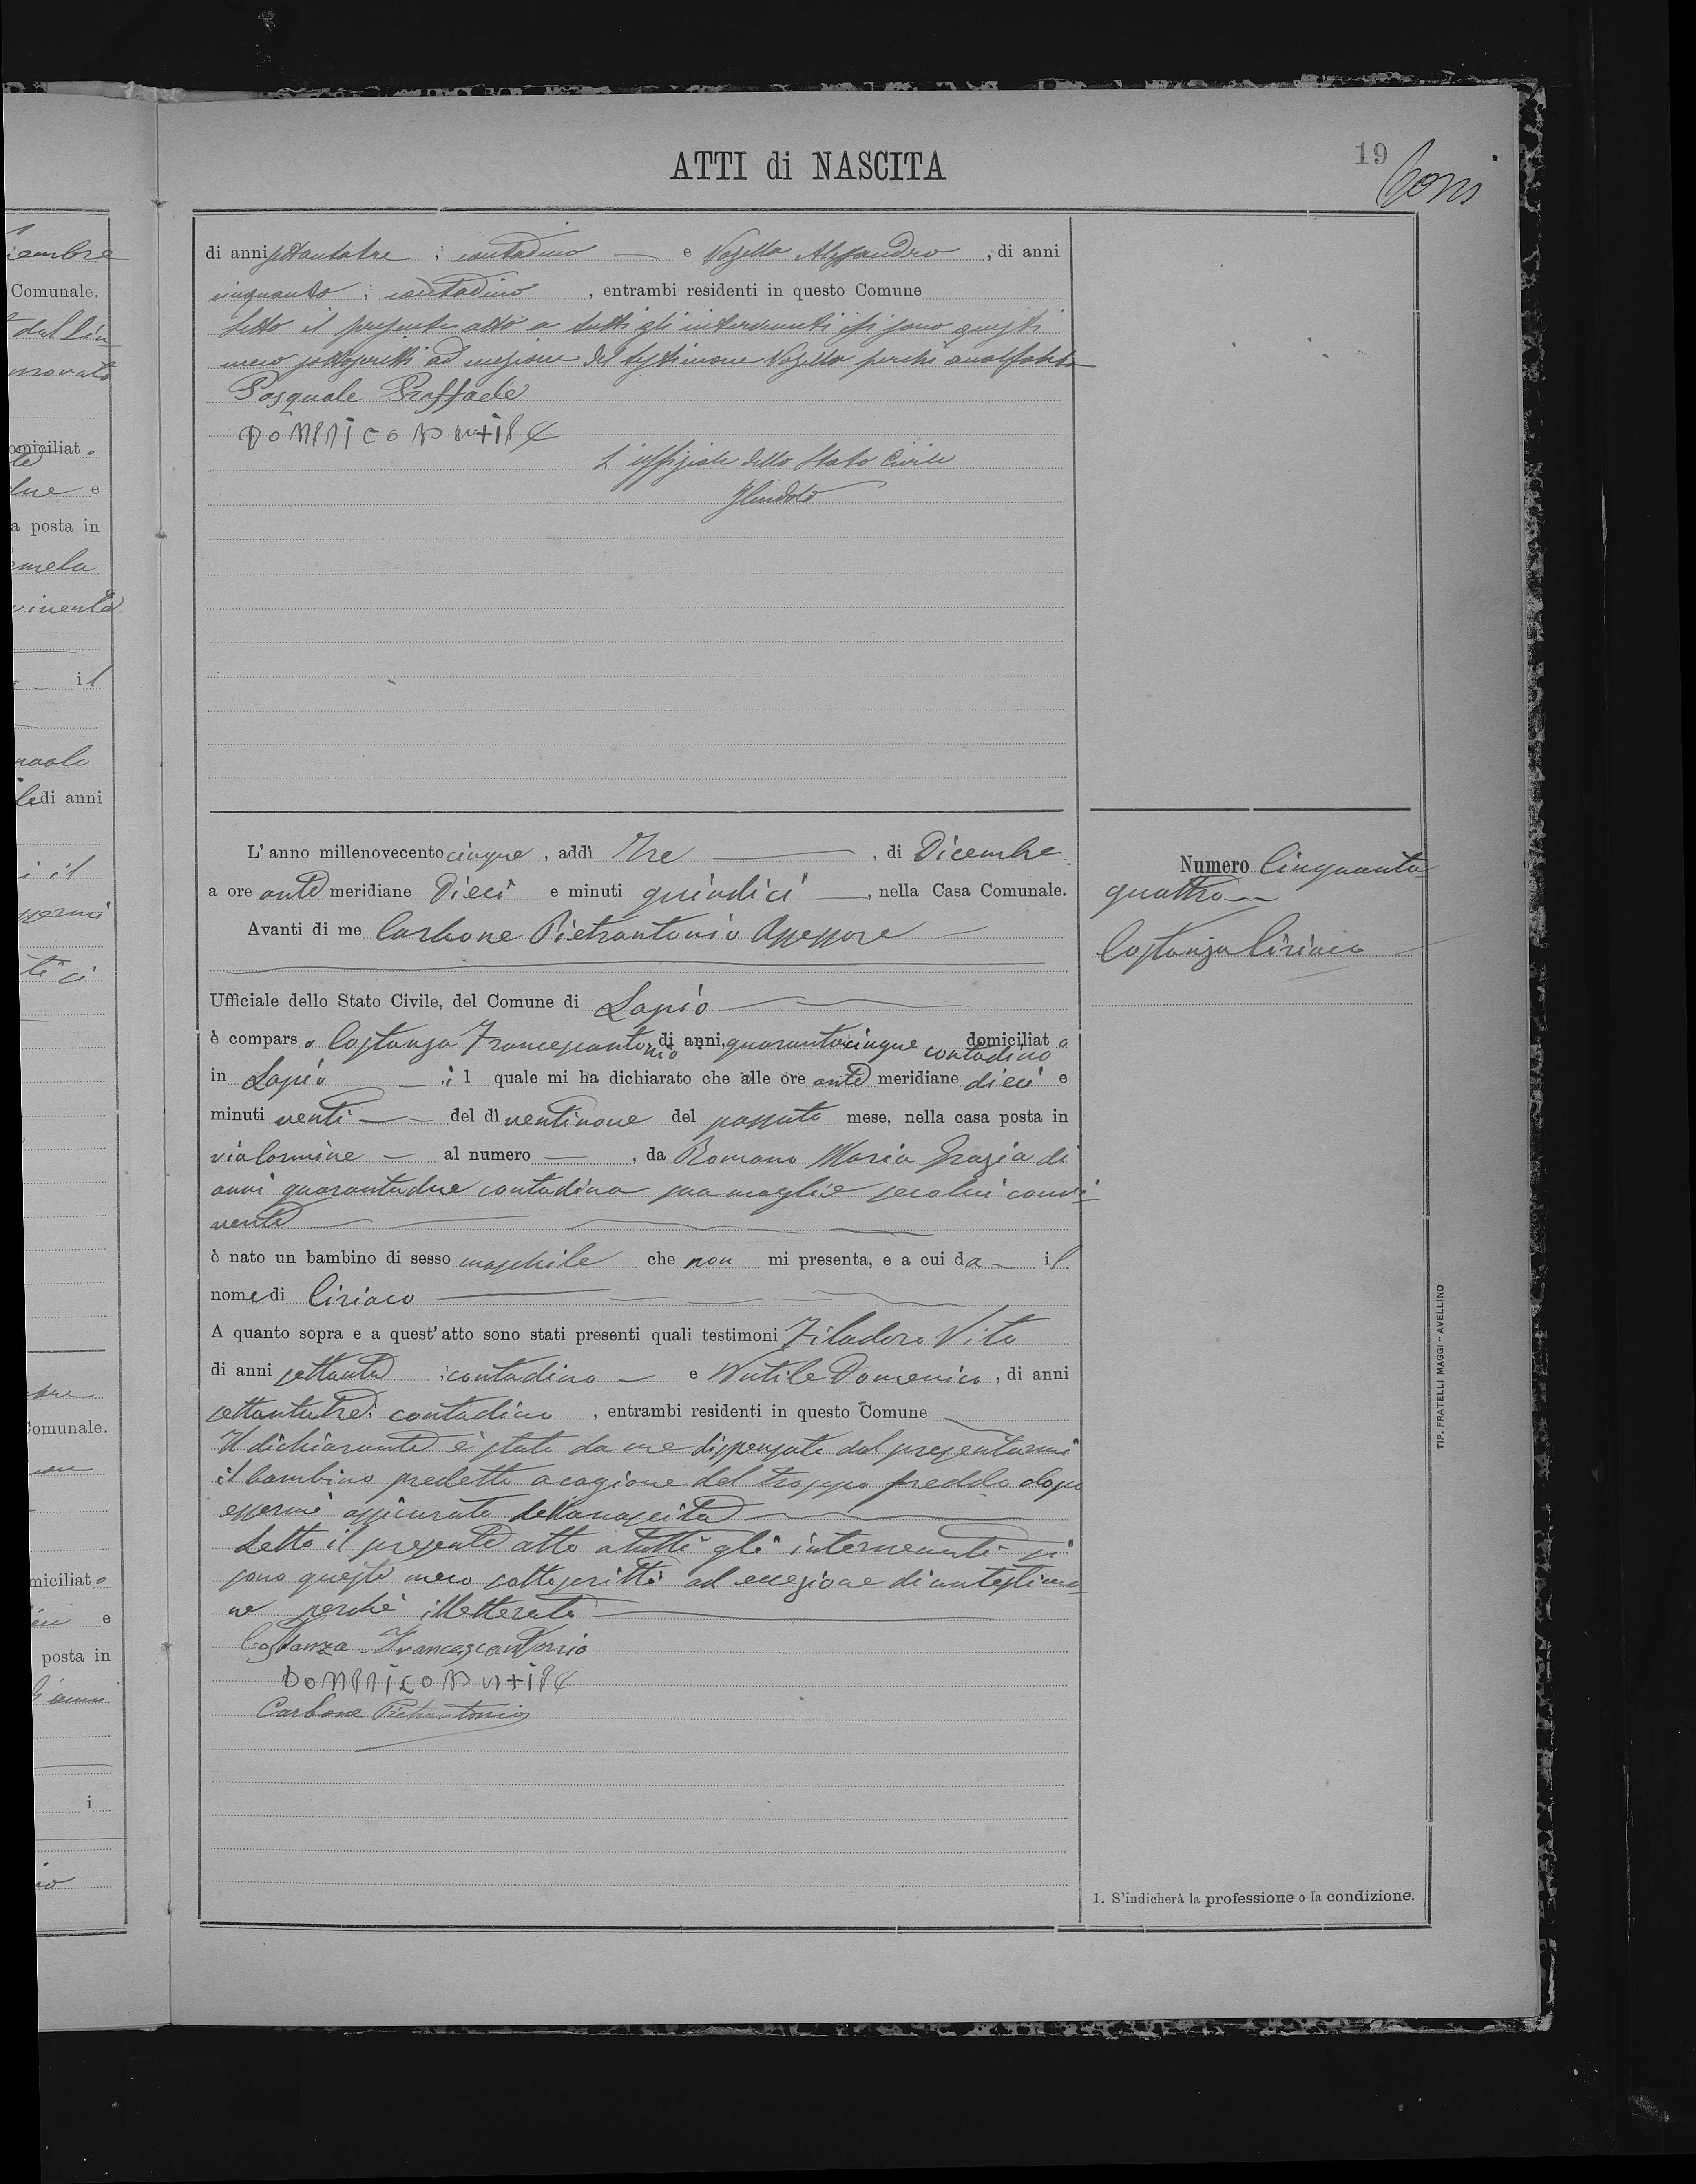 ATTI di NASCITA
19
di anni settantatre ; contadino — e Vozella Alessandro , di anni
cinquanta ; contadino , entrambi residenti in questo Comune
Letto il presente atto a tutti gli intervenuti si sono questi
meco sottoscritti ad eccezione del testimone Vozella perché analfabeta
Pasquale Raffaele
DOMENICO NUTILE
L'uffiziale dello Stato Civile
L'anno millenovecento cinque , addì Tre — , di Dicembre
a ore ante meridiane Dieci e minuti quindici — , nella Casa Comunale.
Avanti di me Carbone Pietrantonio Assessore —
Ufficiale dello Stato Civile, del Comune di Lapio —
è comparso Costanza Francescantonio di anni, quarantacinque contadino domiciliato
in Lapio — il quale mi ha dichiarato che alle ore ante meridiane dieci e
minuti venti — del dì ventinove del passato mese, nella casa posta in
via Carmine — al numero — , da Romano Maria Grazia di
anni quarantadue contadina sua moglie secolui convi-
vente —
è nato un bambino di sesso maschile che non mi presenta, e a cui da — il
nome di Ciriaco —
A quanto sopra e a quest'atto sono stati presenti quali testimoni Filadoro Vito
di anni settanta ; contadino — e Nutile Domenico , di anni
settantatre ; contadino , entrambi residenti in questo Comune
Il dichiarante è stato da me dispensato dal presentarmi
il bambino predetto a cagione del troppo freddo dopo
essermi assicurato della nascita —
Letto il presente atto a tutti gli intervenuti si
sono questi meco sottoscritti ad eccezione di un testimo-
ne perché illetterato —
Costanza Francescantonio
DOMENICO NUTILE
Carbone Pietrantonio
Numero Cinquanta
quattro —
Costanza Ciriaco
1. S'indicherà la professione o la condizione.
TIP. FRATELLI MAGGI - AVELLINO
Comunale.
domiciliato
due e
a posta in
il
di anni
Comunale.
domiciliato
e
posta in
i